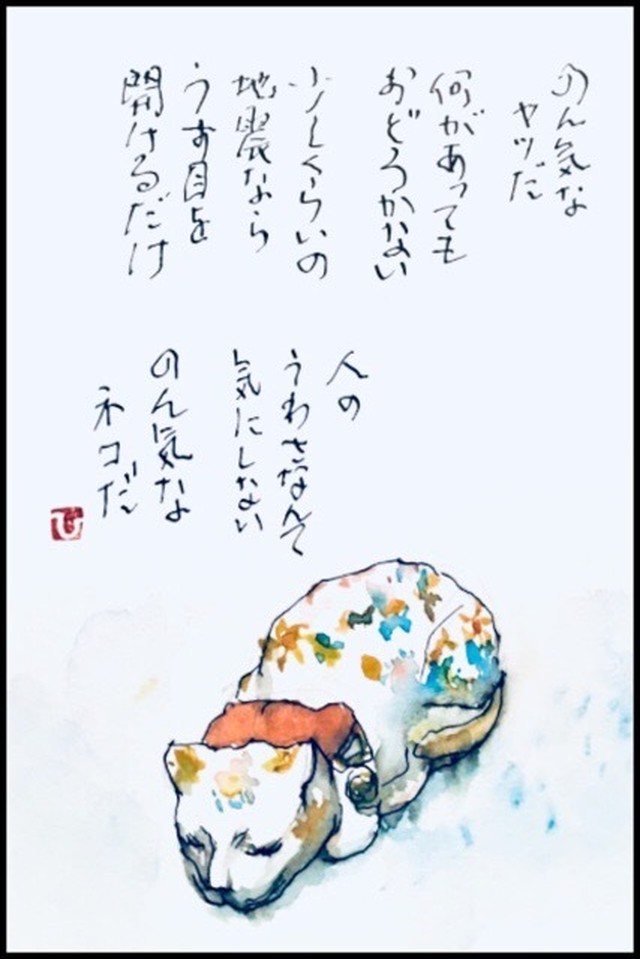 のん気な
ヤツだ
何があっても
おどろかない
少しくらいの
地震なら
うす目を
開けるだけ
人の
うわさなんて
気にしない
のん気な
ネコだ
ひ